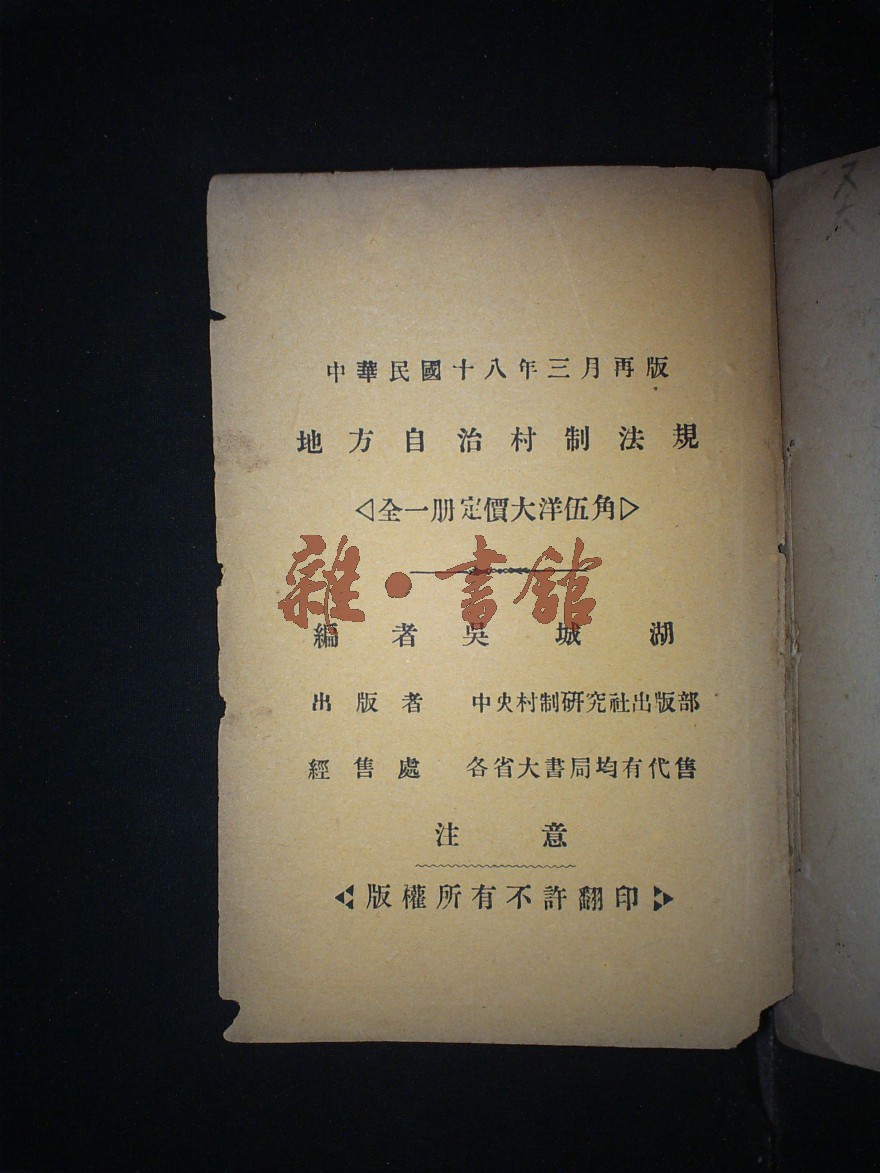 中華民國十八年三月再版
地方自治村制法規
◁全一册定價大洋伍角▷
雜·書館
編者吳城湖
出版者 中央村制研究社出版部
經售處 各省大書局均有代售
注意
版權所有不許翻印